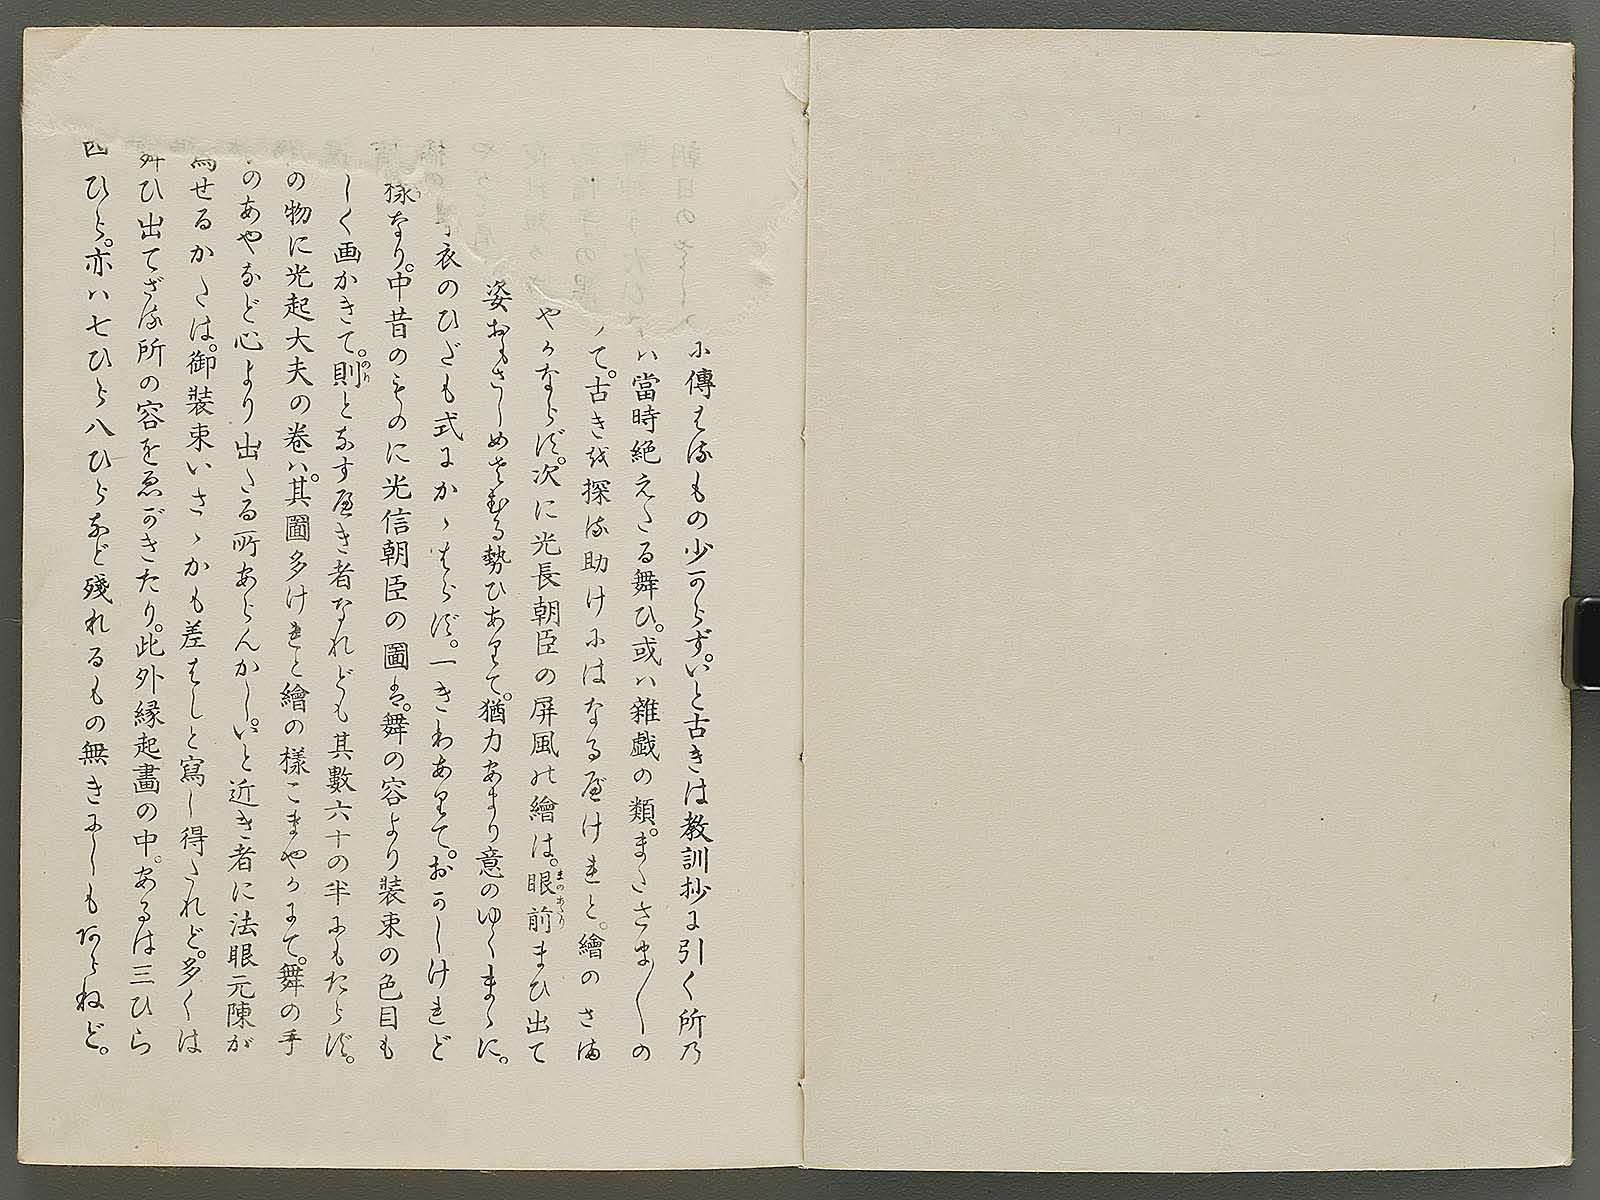 に傳はるもの少からず。いと古きは教訓抄に引く所乃
ハ當時絶えたる舞ひ。或ハ雜戯の類。またさま〴〵の
て。古きを探る助けにはなるべけれと。繪のさま
やかならず。次に光長朝臣の屏風の繪は。眼前まひ出て
姿おもさしめさむる勢ひありて。猶力あまり意のゆくまゝに。
衣のひだも式にかゝはらず。一きわありて。おかしけれど
様なり。中昔のものに光信朝臣の圖は。舞の容より装束の色目も
しく画かきて。則となす扁き者なれども其數六十の半にもたらず。
の物に光起大夫の卷ハ。其圖多けれと繪の様こまやかにて。舞の手
のあやなど心より出たる所あらんかし。いと近き者に法眼元陳が
寫せるかたは。御装束いさゝかも差はしと寫し得たれど。多くは
舞ひ出てざる所の容をゑがきたり。此外縁起畫の中。あるは三ひら
四ひら。亦ハ七ひら八ひらなど殘れるもの無きにしもあらねど。